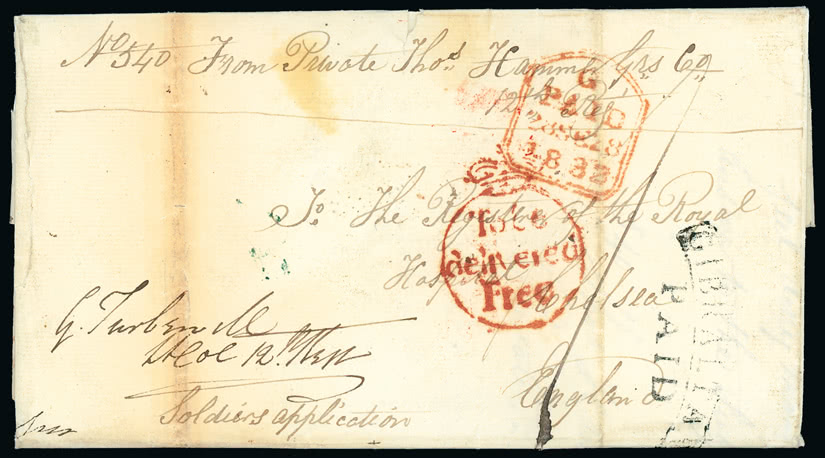 No 540 From Private Thos Hammh Grs Co
12th Reg
G
PAID
28 SE 28
1832
To The Register of the Royal
Hospital Chelsea
England
To be
delivered
Free
G. Turbervill
Lt Col 12th Regt
Soldiers application
GIBRALTAR
PAID